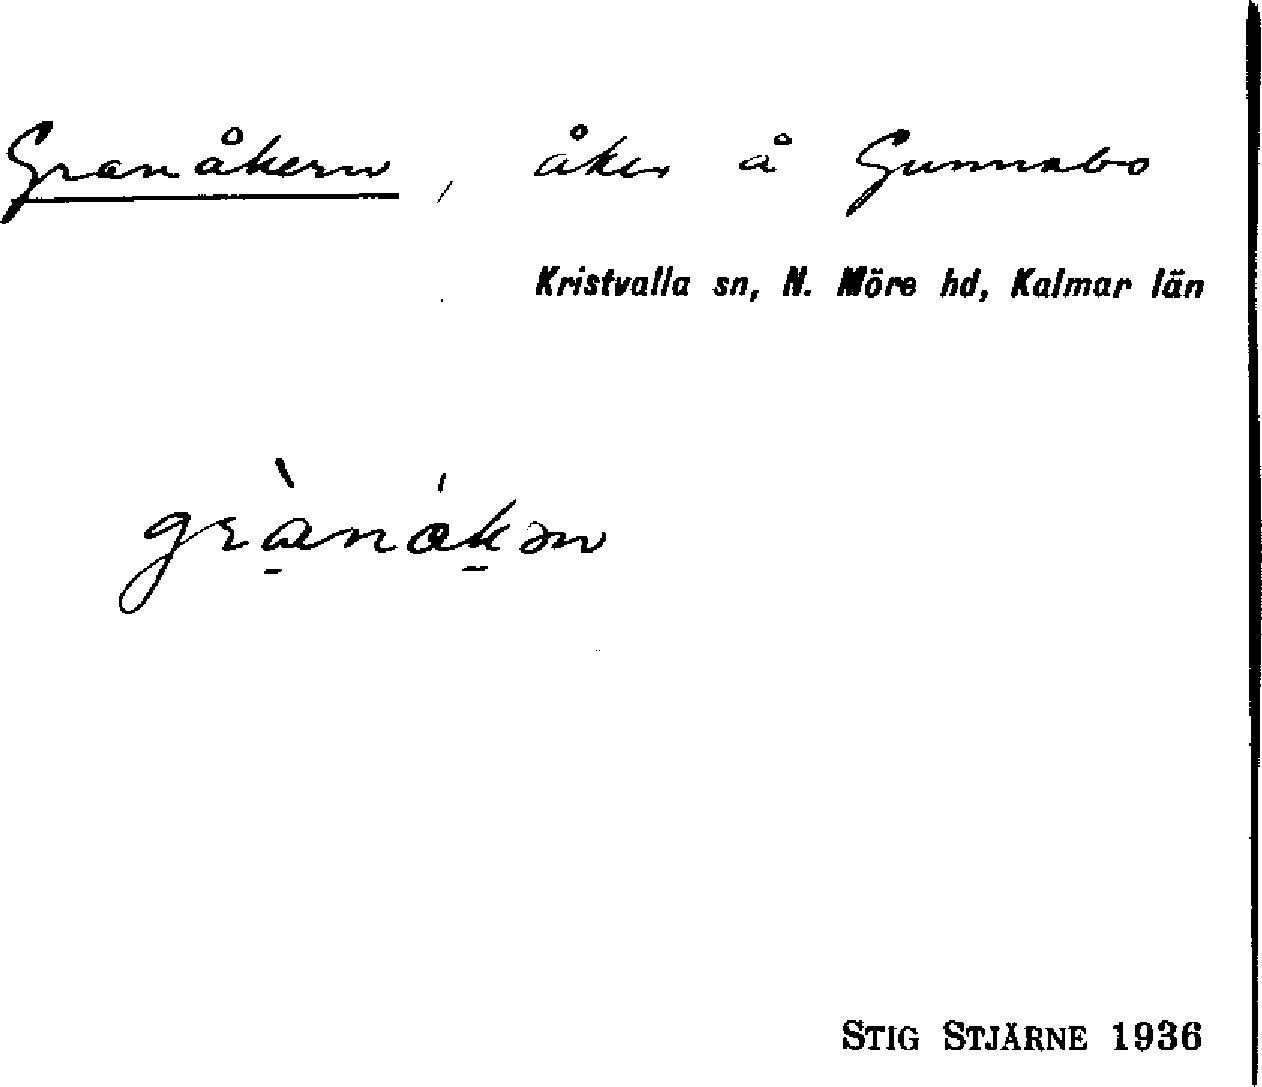 Granåkern, åker å Gunnabo
Kristvalla sn, N. Möre hd, Kalmar län
grànákən
STIG STJÄRNE 1936